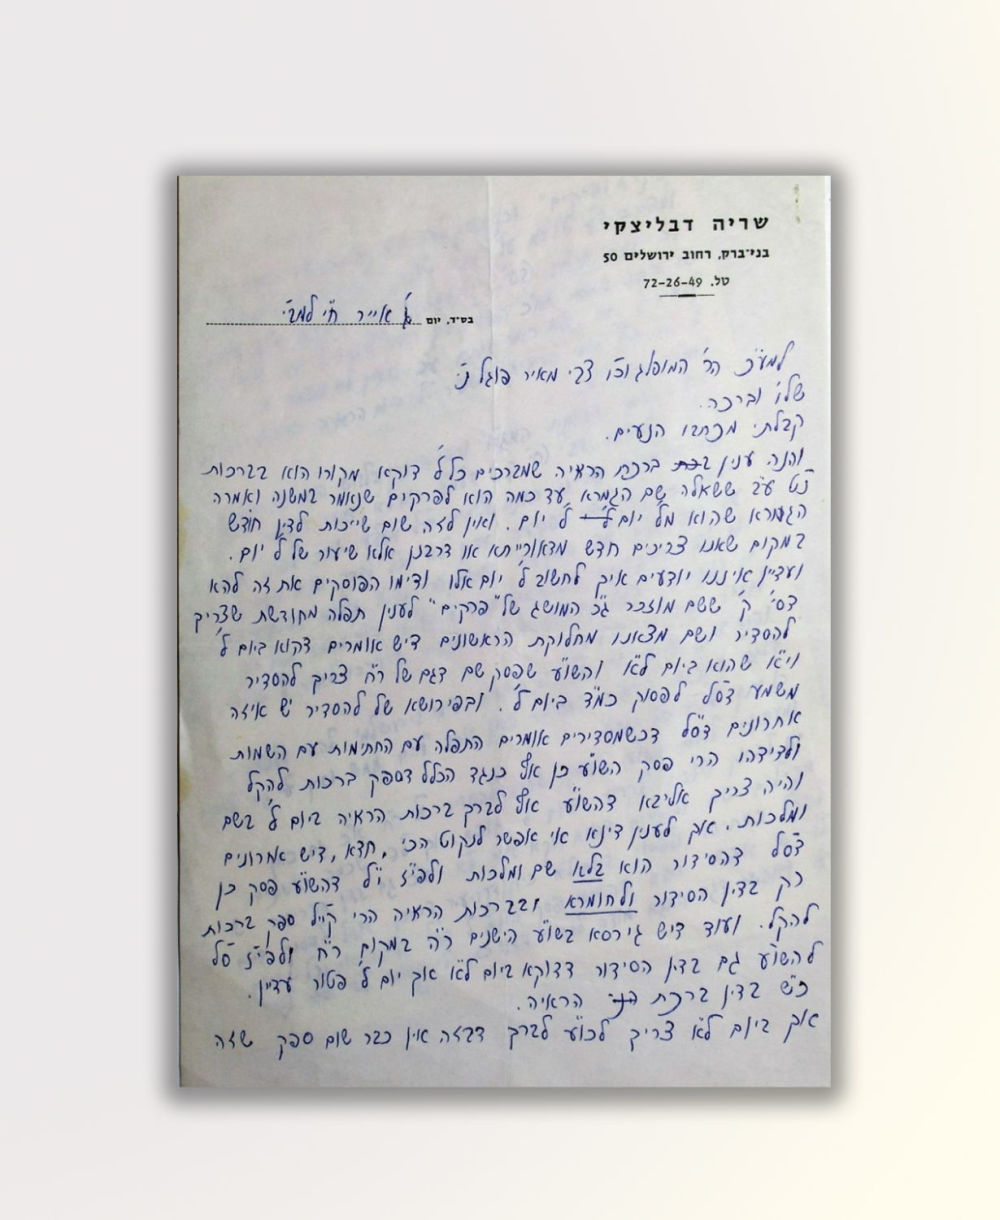 שריה דבליצקי
בני־ברק, רחוב ירושלים 50
טל. 72-26-49
בס״ד, יום אייר ח״י למב״י
למע״כ הר׳ המופלג וכו׳ צבי מאיר פוגל נ״י
שלו׳ וברכה.
קבלתי מכתבו הנעים.
והנה ענין ברכת הראיה שמברכים כל ל׳ דוקא מקורו הוא בברכות
נ״ט ע״ב ששאלה שם הגמרא עד כמה הוא לפרקים שנאמר במשנה ואמרה
הגמרא שהוא מל׳ יום ל׳ יום. ואין לזה שום שייכות לדין חודש
במקום שאנו צריכים חדש מדאורייתא או דרבנן אלא שיעור של ל׳ יום.
ועדיין איננו יודעים איך לחשוב ל׳ יום אלו ודימו הפוסקים את זה להא
דסי׳ ק׳ ששם מוזכר ג״כ המושג של "פרקים" לענין תפלה מחודשת שצריך
להסדיר ושם מצאנו מחלוקת הראשונים דיש אומרים דקוא ביום ל׳
וי״א שהוא ביום ל״א והשו״ע שפסק שם דגם של ר״ח צריך להסדיר
משמע דס״ל לפסוק כמ״ד ביום ל׳. ובפירושא של להסדיר יש איזה
אחרונים דס״ל דכשמסדירים אומרים התפלה עם החתימות עם השמות
ולדידהו הרי פסק השו״ע כן אף כנגד הכלל דספק ברכות להקל
והיה צריך אליבא דהשו״ע אף לברך ברכות הראיה ביום ל׳ בשם
ומלכות. אך לענין דינא אי אפשר לנקוט הכי, חדא, דיש אחרונים
דס״ל דהסידור הוא בלא שם ומלכות ולפי״ז י״ל דהשו״ע פסק כן
רק בדין הסידור ולחומרא ובברכות הראיה הרי קיי״ל ספק ברכות
להקל. ועוד דיש גירסא בשו״ע הישנים ר״ה במקום ר״ח ולפי״ז ס״ל
להשו״ע גם בדין הסידור דדוקא ביום ל״א אך יום ל׳ פטור עדיין.
כ״ש בדין ברכת הראיה.
אך ביום ל״א צריך לכו״ע לברך דבזה אין כבר שום ספק שזה